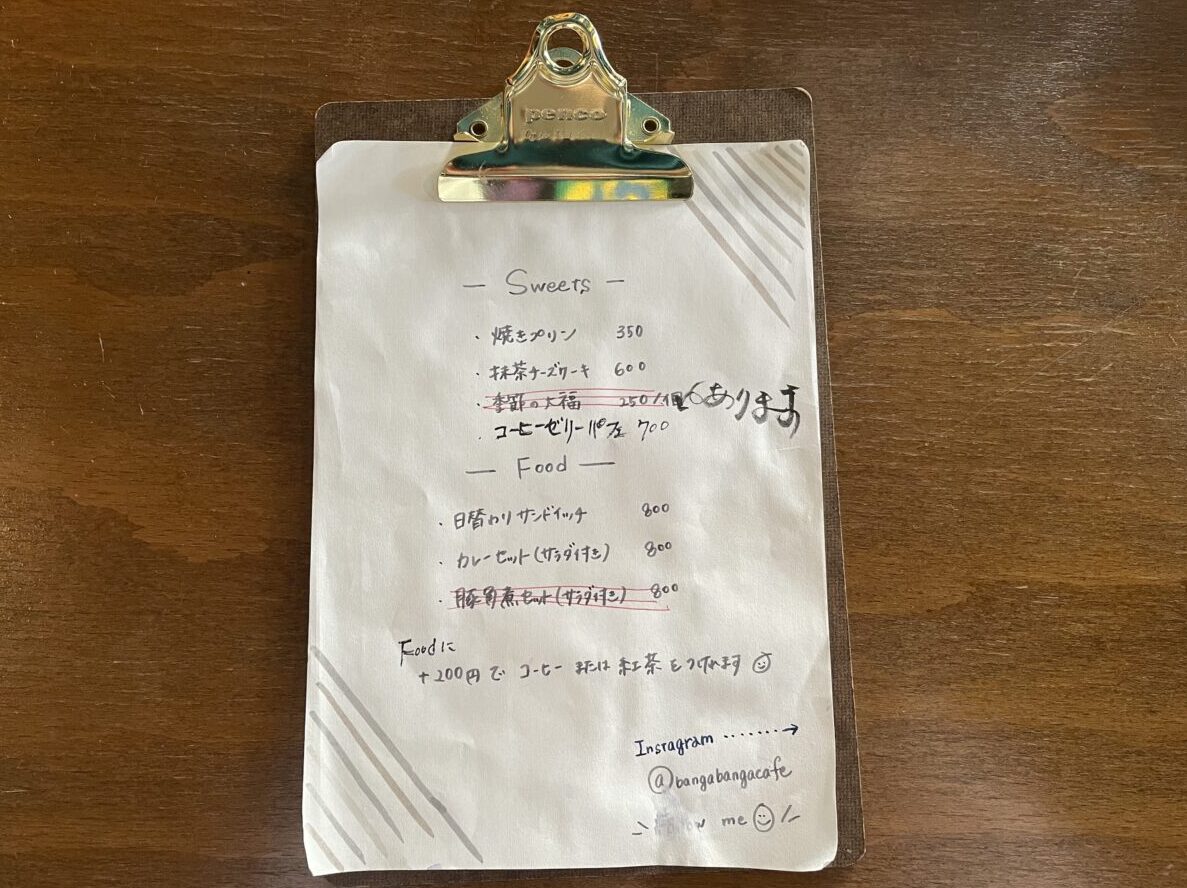 penco
— Sweets —
・焼きプリン 350
・抹茶チーズケーキ 600
・季節の大福 250/個 あります
・コーヒーゼリーパフェ 700
— Food —
・日替わりサンドイッチ 800
・カレーセット(サラダ付き) 800
・豚角煮セット(サラダ付き) 800
Foodに
+200円で コーヒー または 紅茶 をつけれます
Instagram ･･･････→
@bangabangacafe
me